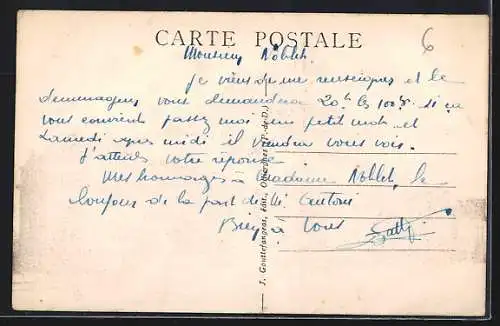 CARTE POSTALE
6
Monsieur Noblet.
Je viens de me renseigner et le
demenageur vous demandera 20 les 100 si ça
vous convient passez moi un petit mot et
Samedi après midi il viendra vous voir.
J'attends votre réponse
Mes hommages à Madame Noblet, le
bonjour de la part de M. Antoni
Bien à vous
J. Gouttefangeas, édit., Olliergues (P.-de-D.)